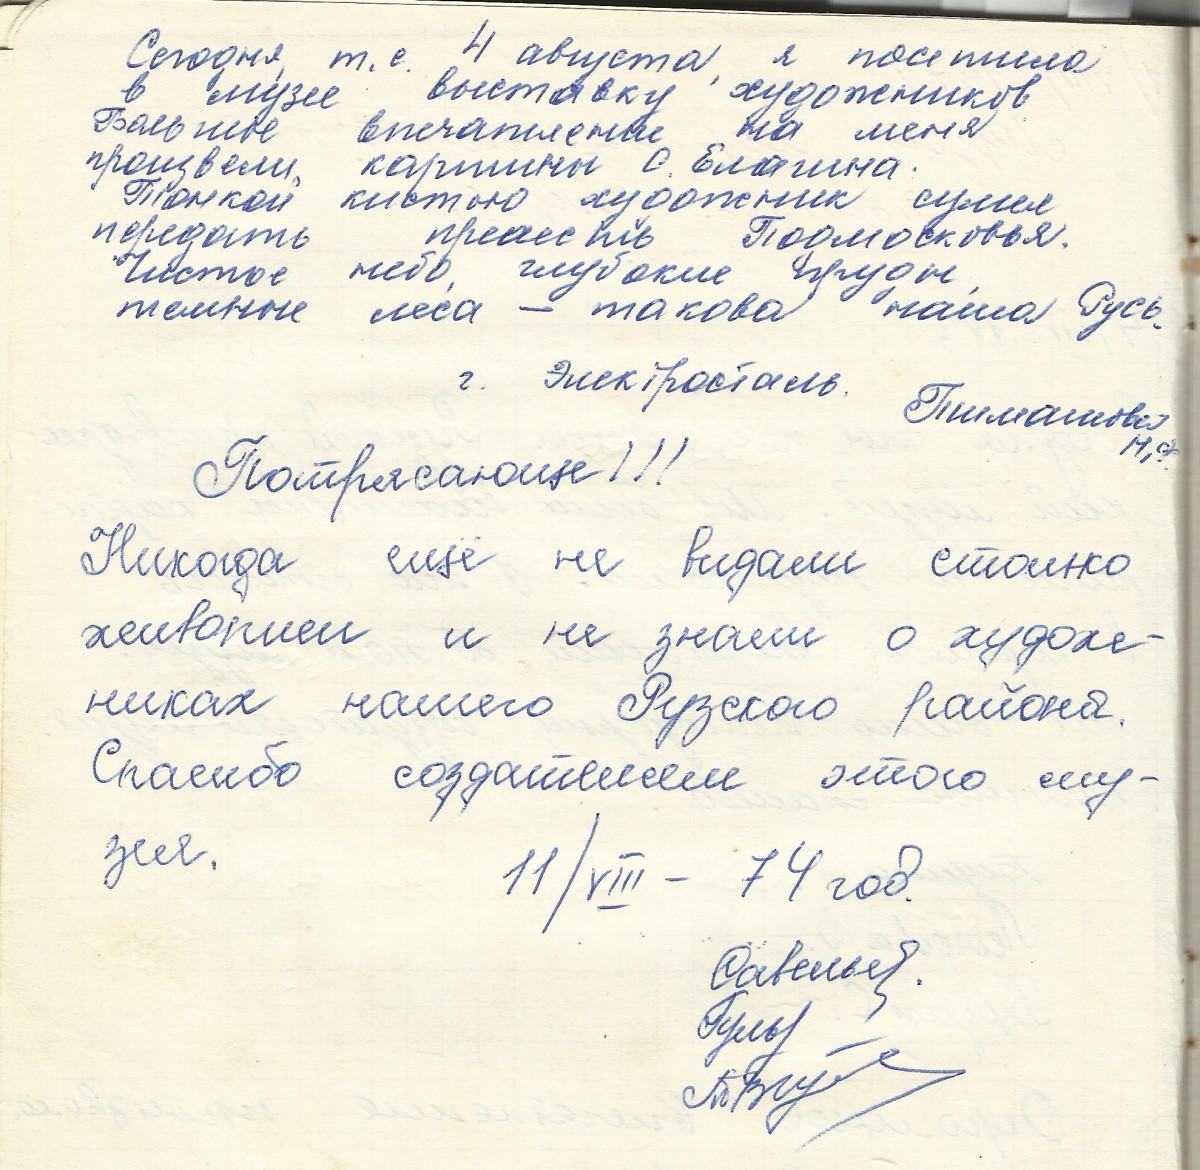 Сегодня, т.е. 4 августа, я посетила
в музее выставку художников
Большое впечатление на меня
произвели, картины С. Елагина.
Тонкой кистью художник сумел
передать прелесть Подмосковья.
Чистое небо, глубокие пруды,
темные леса – такова наша Русь.
г. Электросталь.
Пимашова
Потрясающе!!!
Никогда ещё не видали столько
живописи и не знали о худож-
никах нашего Рузского района.
Спасибо создателям этого му-
зея.
11/VIII – 74 год.